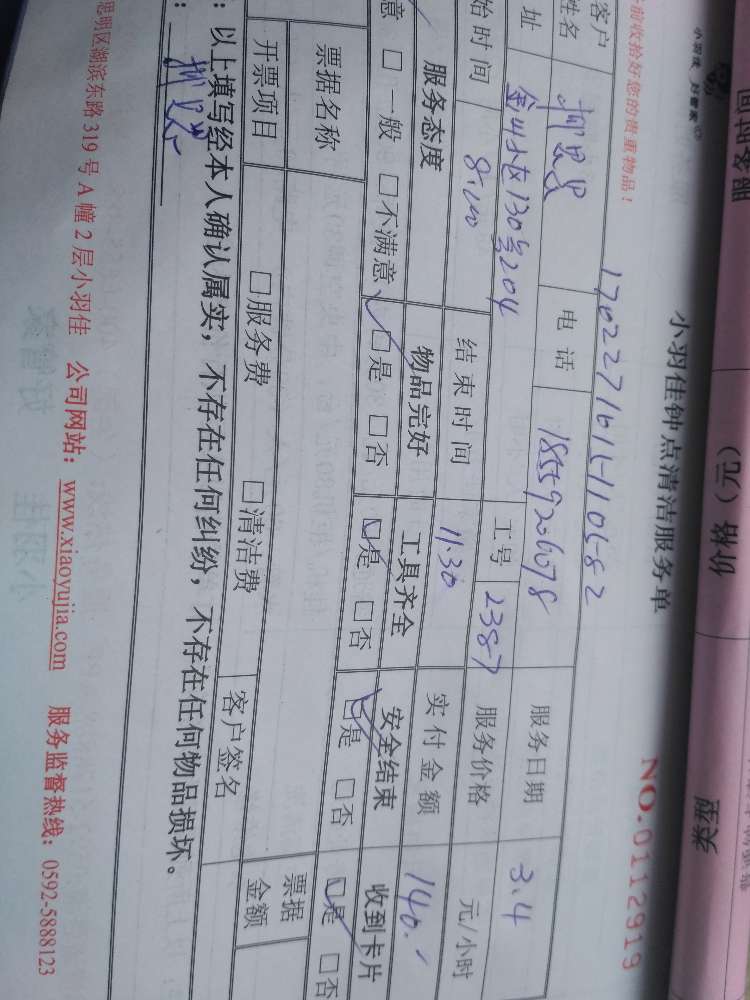 服务时间
价格（元）
类型
小羽佳 好管家
小羽佳钟点清洁服务单
前收拾好您的贵重物品！
NO.0112919
客户姓名 电话 18559206678 服务日期 3.4
址 金山小区130号204 工号 2387 服务价格 元/小时
始时间 8:00 结束时间 11:30 实付金额 140.
服务态度 物品完好 工具齐全 安全结束 收到卡片
意 □一般 □不满意 □是 □否 □是 □否 □是 □否 □是 □否
票据名称 票据金额
开票项目 □服务费 □清洁费 客户签名
：以上填写经本人确认属实，不存在任何纠纷，不存在任何物品损坏。
思明区湖滨东路319号A幢2层小羽佳 公司网站：www.xiaoyujia.com 服务监督热线：0592-5888123